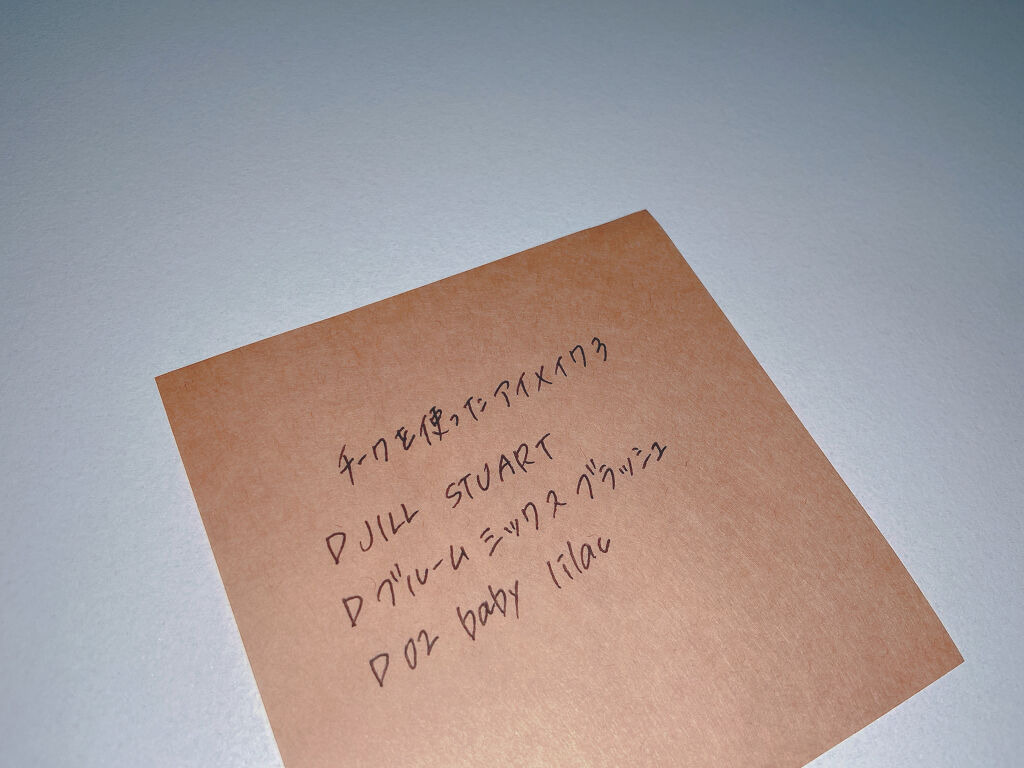 チークを使ったアイメイク3
▷ JILL STUART
▷ ブルーム ミックス ブラッシュ
▷ 02 baby lilac